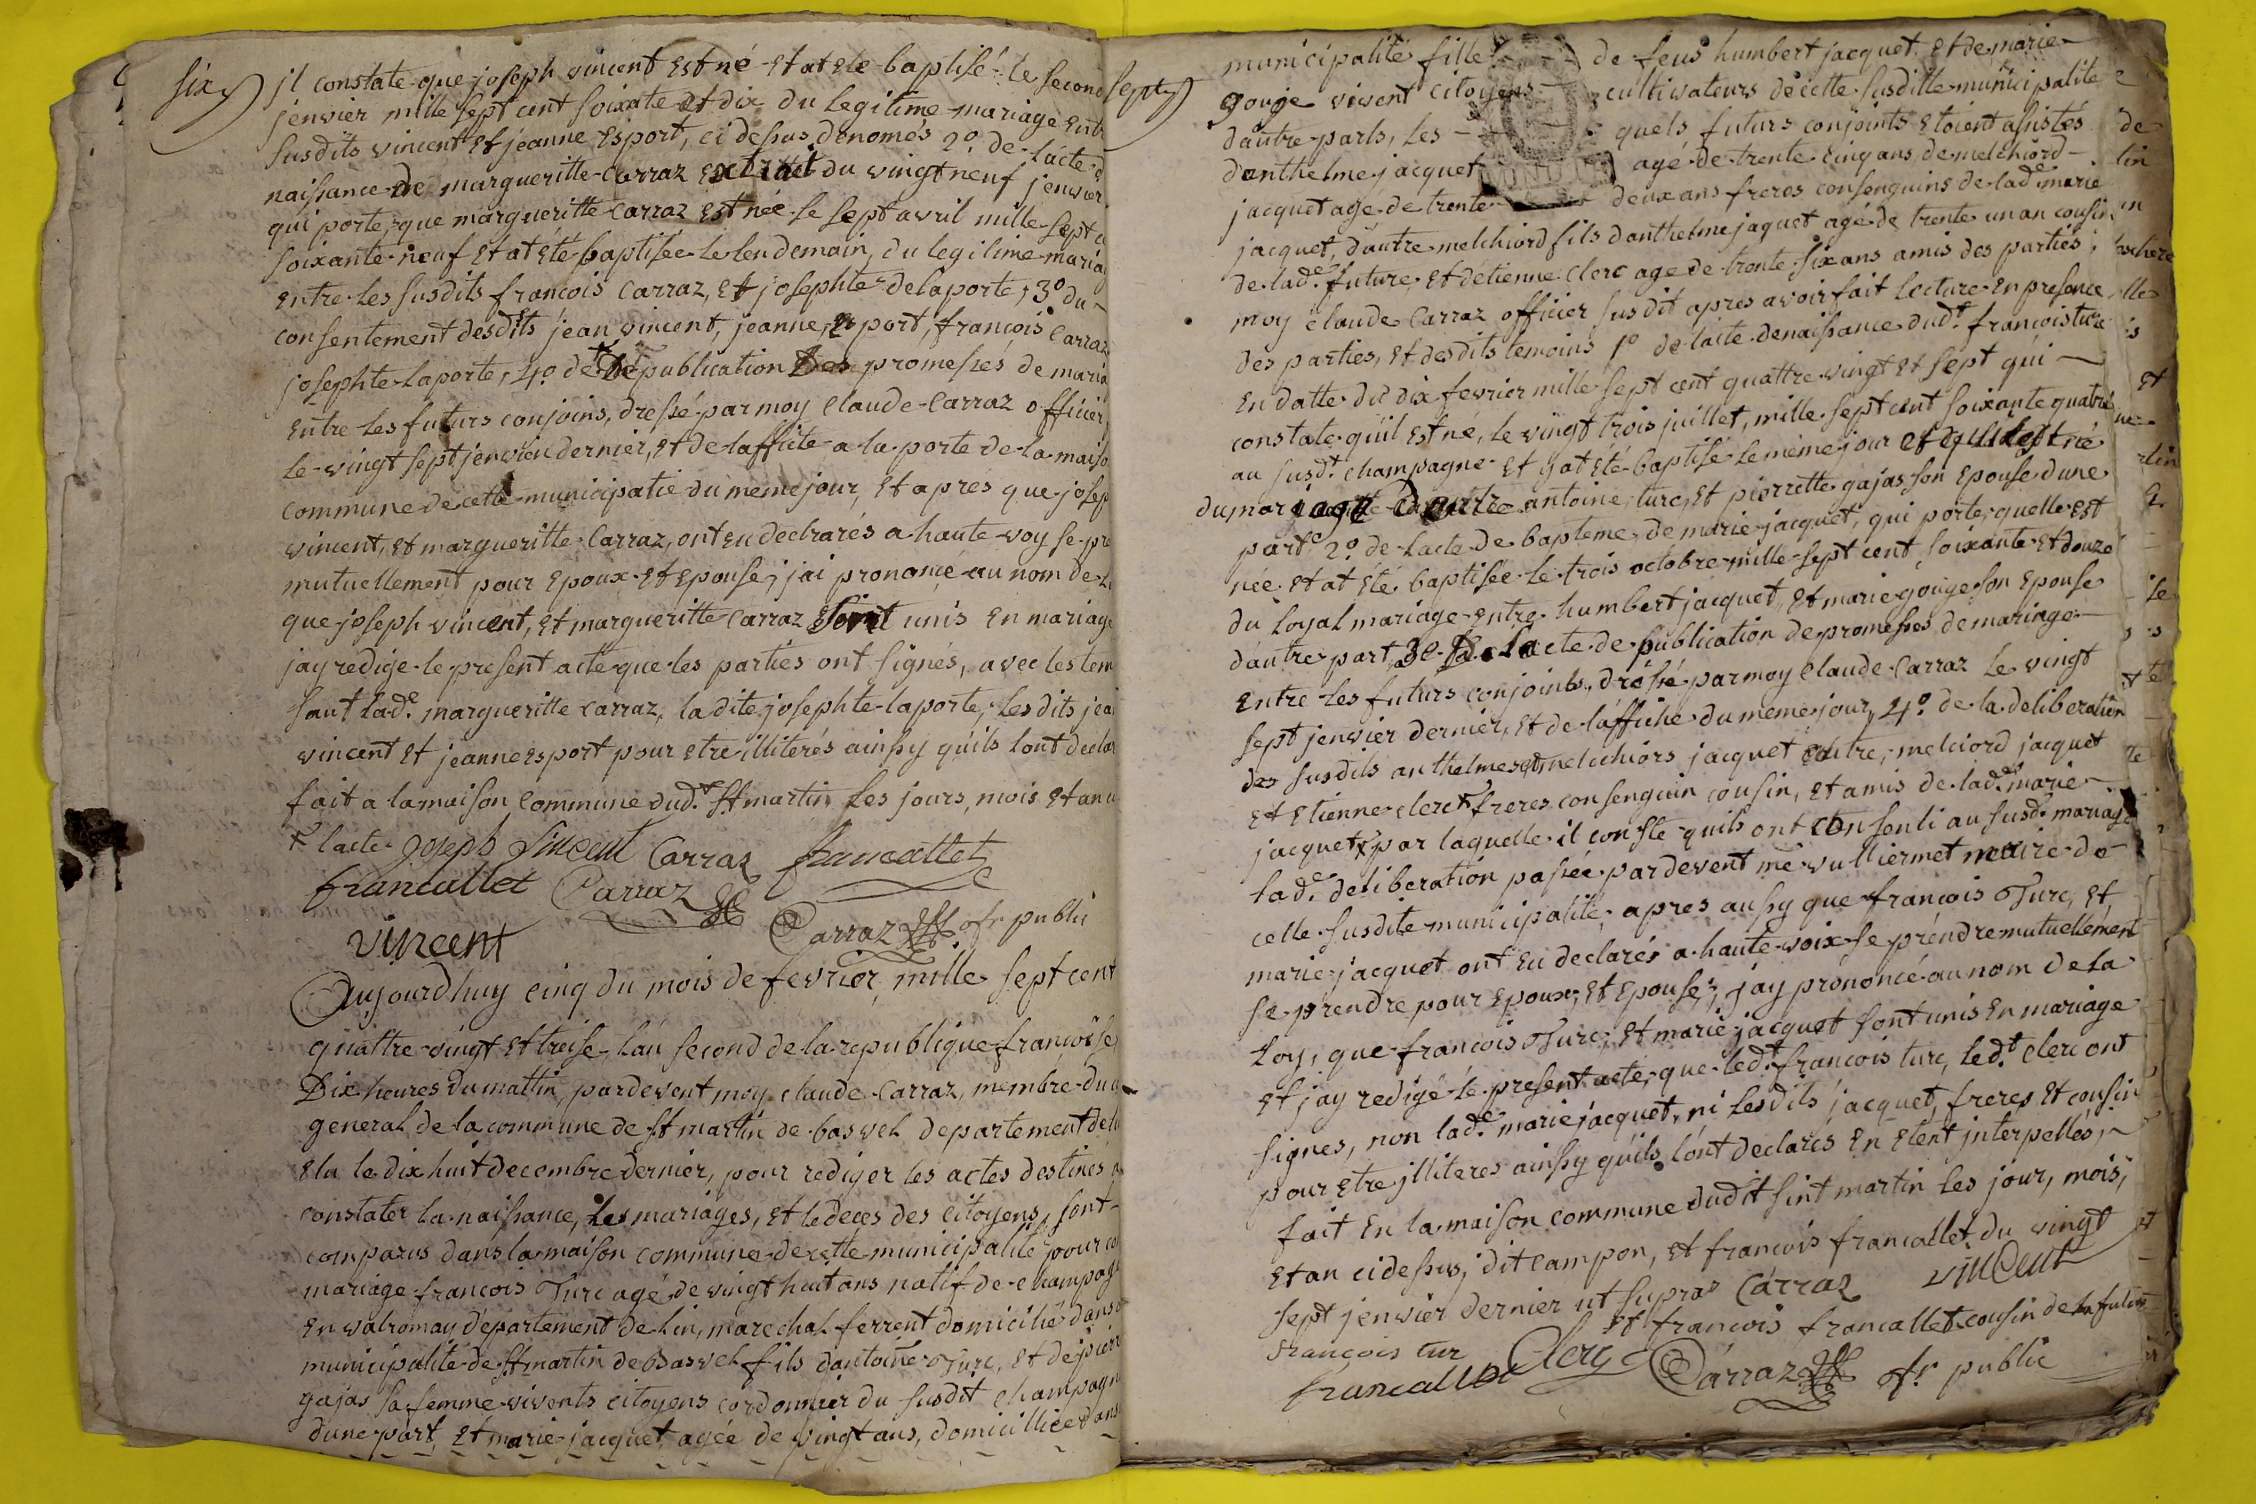 six
il constate que joseph vincent est né et at ete baptisé le second
jenvier mille sept cent soixate et dix du legitime mariage entr
susdits vincent et jeanne Esport, ci dessus denomés 2º. de l'acte
naissance de margueritte Carraz extrait du vingt neuf jenvier
qui porte, que margueritte Carraz est née le sept avril mille sept
soixante neuf et at été baptisée le lendemain, du legitime maria
entre les susdits francois Carraz, et josephte delaporte, 3º. du
consentement desdits jean vincent, jeanne Esport, francois Carraz
josephte laporte, 4º. de publication des promesses de maria
entre les futurs conjoins, dressé par moy Claude Carraz officier
le vingt sept jenvier dernier, et de laffiche a la porte de la maiso
commune de cette municipatié du meme jour, et apres que josep
vincent, et margueritte Carraz, ont eu declarés a haute voy se pre
mutuellement pour epoux et epouse, j'ai prononcé au nom de
que joseph vincent, et margueritte Carraz sont unis en mariage
jay redige le present acte que les parties ont signés, avec les tem
saut lade. margueritte carraz, la dite josephte laporte, les dits jea
vincent et jeanne esport pour etre illiterés ainssy qu'ils lont declar
fait a la maison commune dudt. st martin les jours, mois et an
lacte joseph Vincent Carraz francallet
francallet Carraz
Carraz ofr public
vincent
Aujourdhuy cinq du mois de fevrier mille sept cent
quattre vingt et treise lan second de la republique francoise
Dix heures du mattin, pardevent moy claude Carraz, membre du
general de la commune de st martin de bavel departement de
elu le dix huit decembre dernier, pour rediger les actes destinés
constater la naissance, les mariages, et le deces des citoyens, sont
comparus dans la maison commune de cette municipalité pour
mariage francois Turc agé de vingt huit ans natif de champag
en valromay departement de Lin, marechal ferrent domicilié dans
municipalité de st martin de Bavel fils dantoine Turc, et de pierr
gajas sa femme vivents citoyens cordonnier du susdit champagn
dune part, et marie jacquet agée de vingt ans, domicilliée dans
septs
municipalité fille de feus humbert jacquet, et de marie
gouje vivent citoyens cultivateurs de cette susditte municipalite
dautre parts, les quels futurs conjoints etoient assistés
danthelme jacquet agé de trente cinq ans de melchiord
jacquet age de trente deux ans freres consenguins de lade. marie
jacquet, dautre melchiord fils danthelme jaquet agé de trente un an cousin
de lade. future, et détienne Clerc age de trente six ans amis des parties;
moy claude Carraz officier susdit apres avoir fait lecture en presence
des parties, et desdits temoins 1º de lacte de naissance dudt. francois turc
en datte du dix fevrier mille sept cent quattre vingt et sept qui
constate quil est né, le vingt trois juillet, mille sept cent soixante quatre
au susdt. champagne et y at été baptisé le meme jour et quil est né
du mariage dentre antoine turc, et pierrette gajas son epouse dune
part 2º. de lacte de bapteme de marie jacquet, qui porte, quelle est
née et at été baptisée le trois octobre mille sept cent soixante et douze
du loyal mariage entre humbert jacquet, et marie gouge son epouse
dautre part, 3º. de lacte de publication de promesses de mariage
entre les futurs conjoints, dréssé par moy claude Carraz le vingt
sept jenvier dernier, et de l'affiche du meme jour, 4º. de la deliberation
des susdits anthelme et melchiors jacquet autre, melciord jacquet
et etienne clerc freres consenguin cousin, et amis de lade. marie
jacquet par laquelle il conste quils ont consenti au susdt. mariage
lade. deliberation passée pardevent me vulliermet maire de
cette susdite municipalité; apres aussy que francois Turc, et
marie jacquet ont eu declarés a haute voix se prendre mutuellement
se prendre pour epoux, et epouse, jay prononcé au nom de la
Loy, que francois Turc, et marie jacquet sont unis en mariage
et jay redigé le present acte, que ledt. francois turc, ledt. clerc ont
signes, non lade. marie jacquet, ni lesdits jacquet, freres et cousin
pour etre jlliteres ainssy quils lont declarés en etent jnterpelles,
fait en la maison commune dudit sint martin les jour, mois,
et an cidessus, dit campon, et francois francallet du vingt
sept jenvier dernier ut supra Carraz vincent
et francois francallet cousin de la future
francois tur
francallet Clerc Carraz ofr public